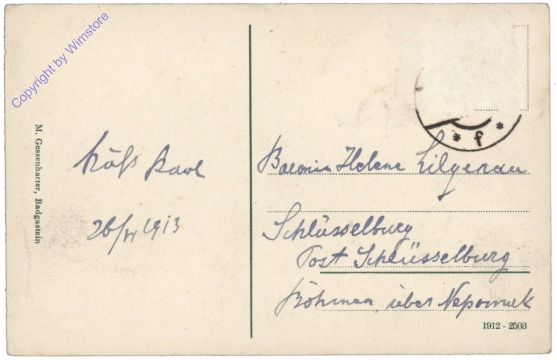 Copyright by Wimstore
M. Gessenharter, Badgastein
Karl
26/VI 1913
Baronin Helene Lilgenau
Schlüsselburg
Post Schlüsselburg
Böhmen, über Nepomuk
1912 - 2503
* f *